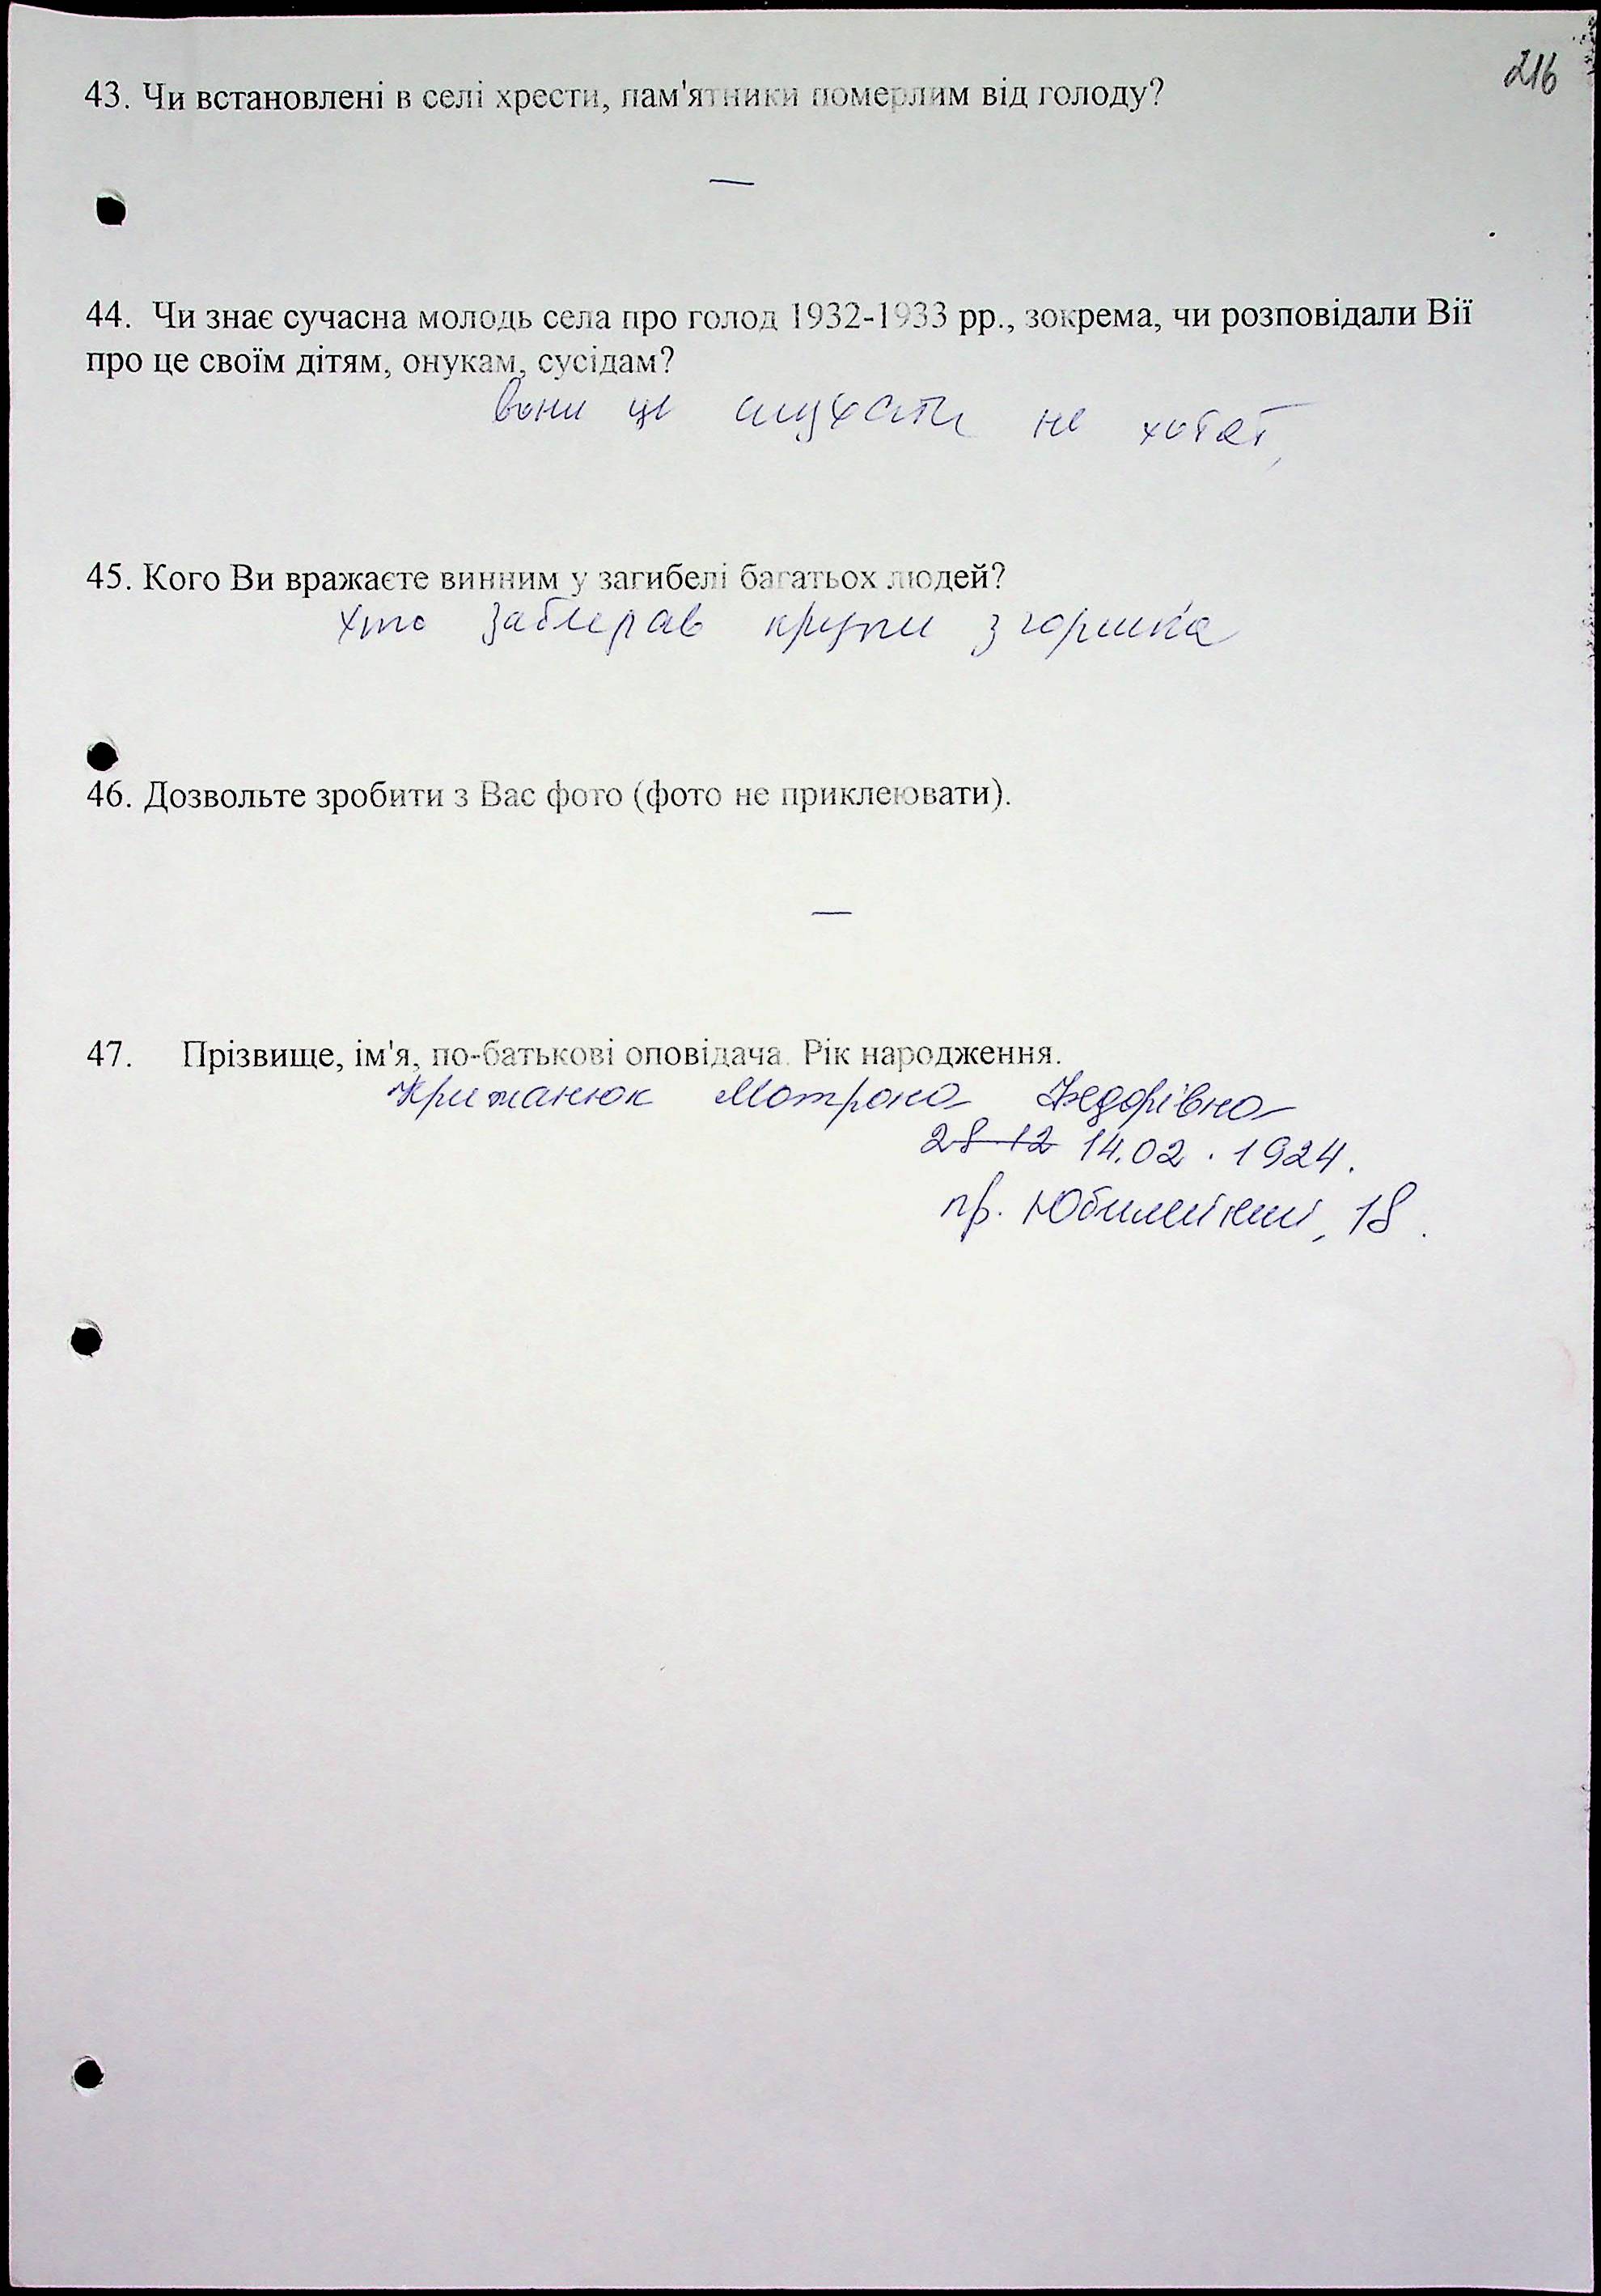 216
43. Чи встановлені в селі хрести, пам'ятники померлим від голоду?
—
44. Чи знає сучасна молодь села про голод 1932-1933 рр., зокрема, чи розповідали Вії
про це своїм дітям, онукам, сусідам?
вони це слухати не хотят,
45. Кого Ви вражаєте винним у загибелі багатьох людей?
хто забирав крупи з горшка
46. Дозвольте зробити з Вас фото (фото не приклеювати).
—
47. Прізвище, ім'я, по-батькові оповідача. Рік народження.
Крижанюк Мотрона Федорівна
28 12 14.02.1924.
пр. Юбилейний, 18.